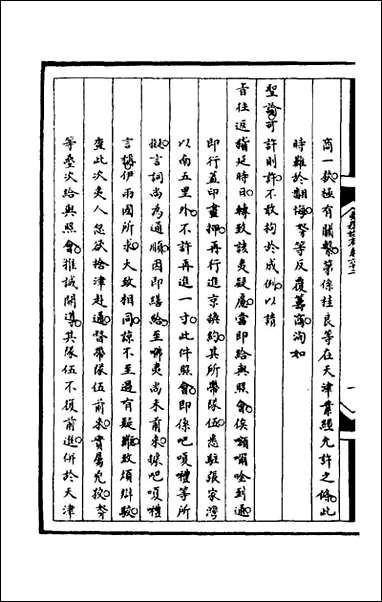 商一款極有關繫第係桂良等在天津業經允許之條此
時難於翻悔奴等反覆籌商洵如
聖諭可許則許不敢拘於成例以請
旨往返稽延時日轉致該夷疑慮當即給與照會俟額爾唫到通
即行蓋印畫押再行進京換約其所帶隊伍悉駐張家灣
以南五里外不許再進一寸此件照會即係吧嗄禮等所
擬言詞尚為通順因即繕給至㗲夷尚未前來據吧嗄禮
言稱伊兩國所求大致相同諒不至過有疑難致煩辯駁
查此次夷人忽欲捨津赴通督帶隊伍前來實屬兇狡奴
等疊次給與照會推誠開導其隊伍不復前進併於天津